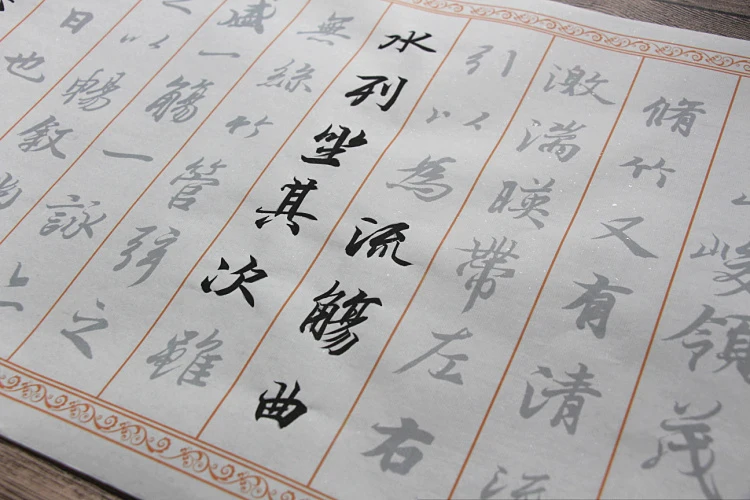 峻領茂
脩竹又有清流
激湍暎帶左右
引以為流觴曲
水列坐其次雖
無絲竹管弦之
盛一觴一詠
以暢叙
日也